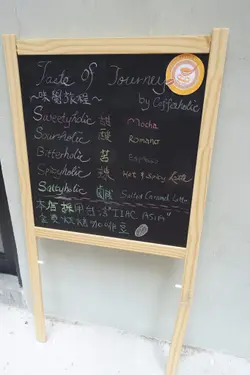 Taste of Journey
~味覺旅程~ by Coffaholic
Sweetyholic 甜 Mocha
Sourholic 酸 Romano
Bitterholic 苦 Espresso
Spicyholic 辣 Hot & Spicy Latte
Saltyholic 鹹 Salted Caramel Latte
本店採用台灣 "IIAC
金獎 咖啡豆